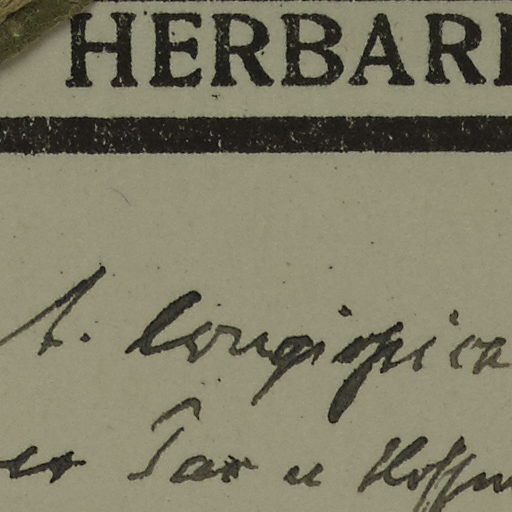 HERBARI
A. longispica
er Pax u Hoffm